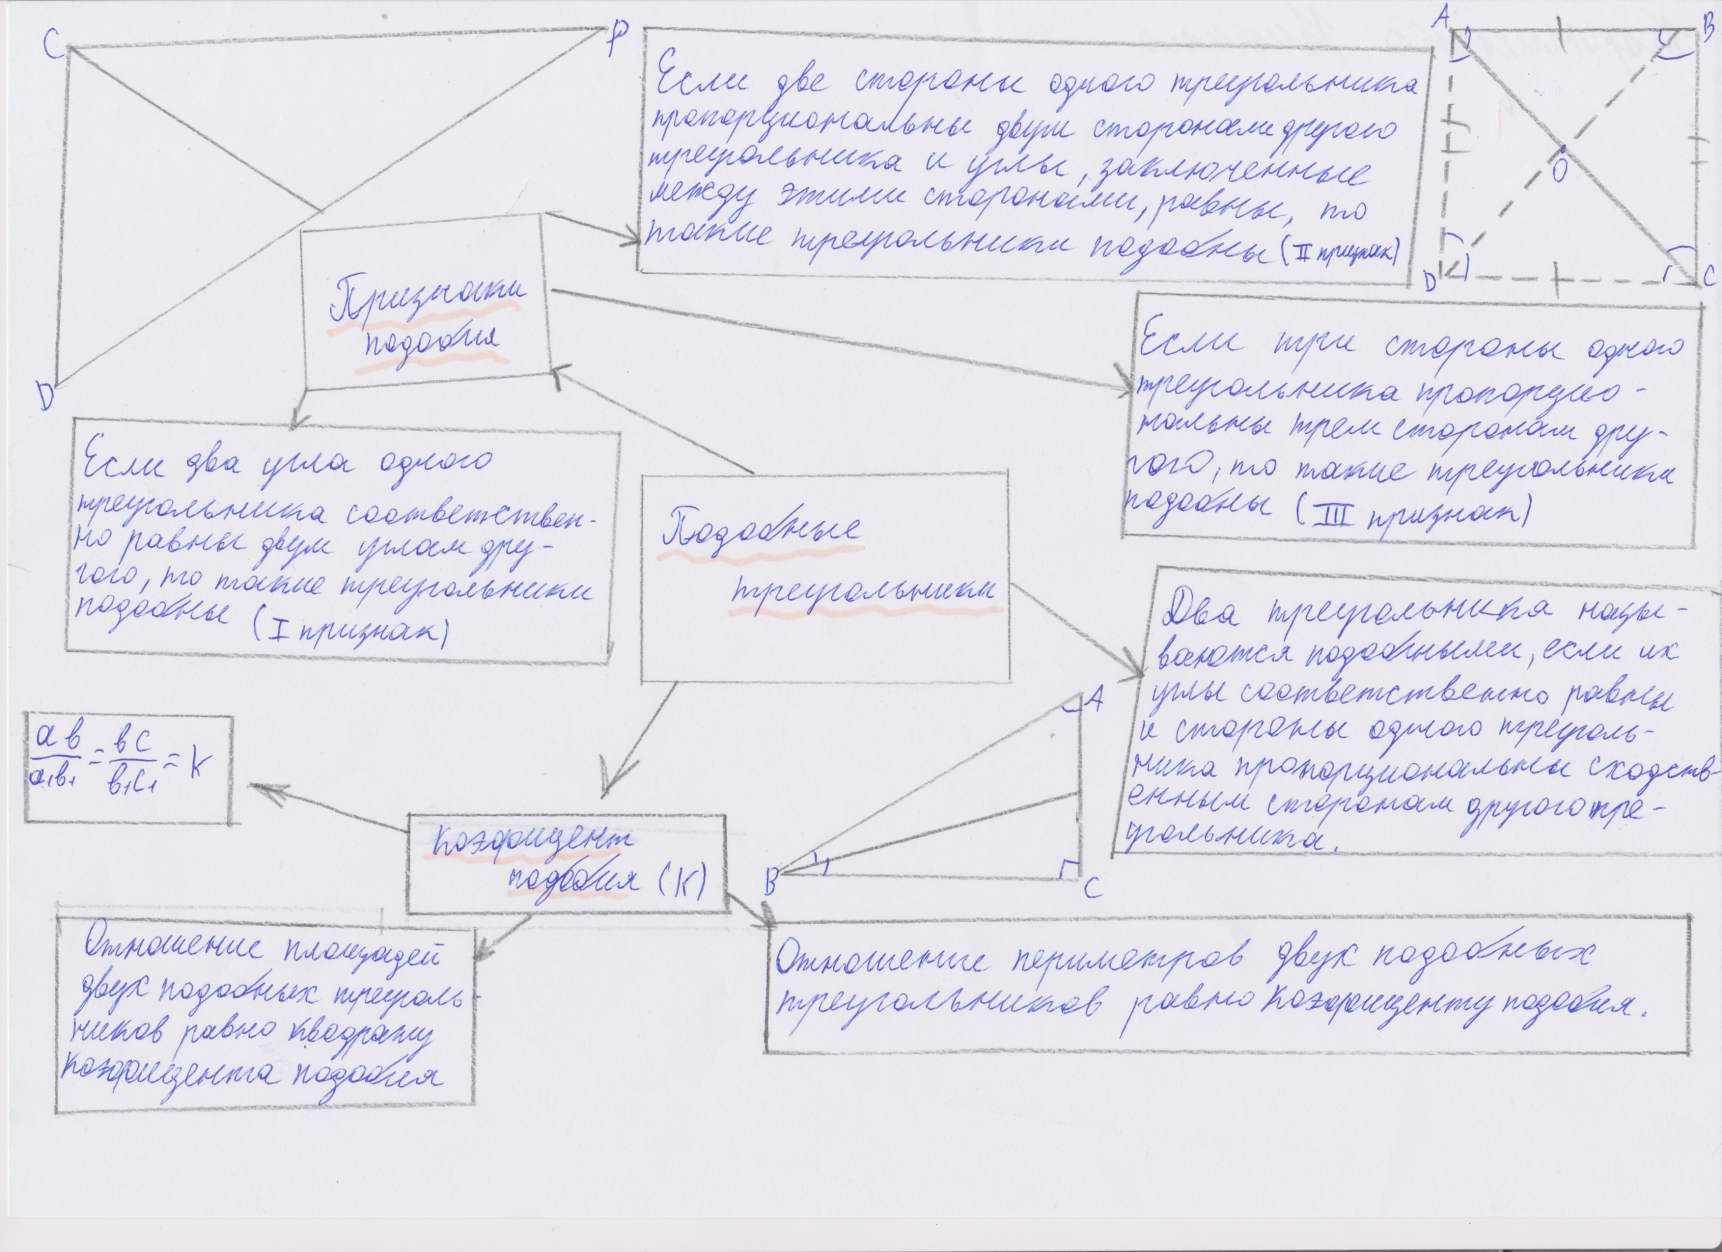 C
P
D
Если две стороны одного треугольника
пропорциональны двум сторонам другого
треугольника и углы, заключенные
между этими сторонами, равны, то
такие треугольники подобны (II признак)
A
B
O
D
C
Признаки
подобия
Если три стороны одного
треугольника пропорцио-
нальны трем сторонам дру-
гого, то такие треугольники
подобны (III признак)
Если два угла одного
треугольника соответствен-
но равны двум углам дру-
гого, то такие треугольники
подобны (I признак)
Подобные
треугольники
Два треугольника назы-
ваются подобными, если их
углы соответственно равны
и стороны одного треуголь-
ника пропорциональны сходств-
енным сторонам другого тре-
угольника.
A
B
C
ав/а₁в₁ = вс/в₁с₁ = к
Коэффициент
подобия (К)
Отношение площадей
двух подобных треуголь-
ников равно квадрату
коэффициента подобия
Отношение периметров двух подобных
треугольников равно коэффициенту подобия.